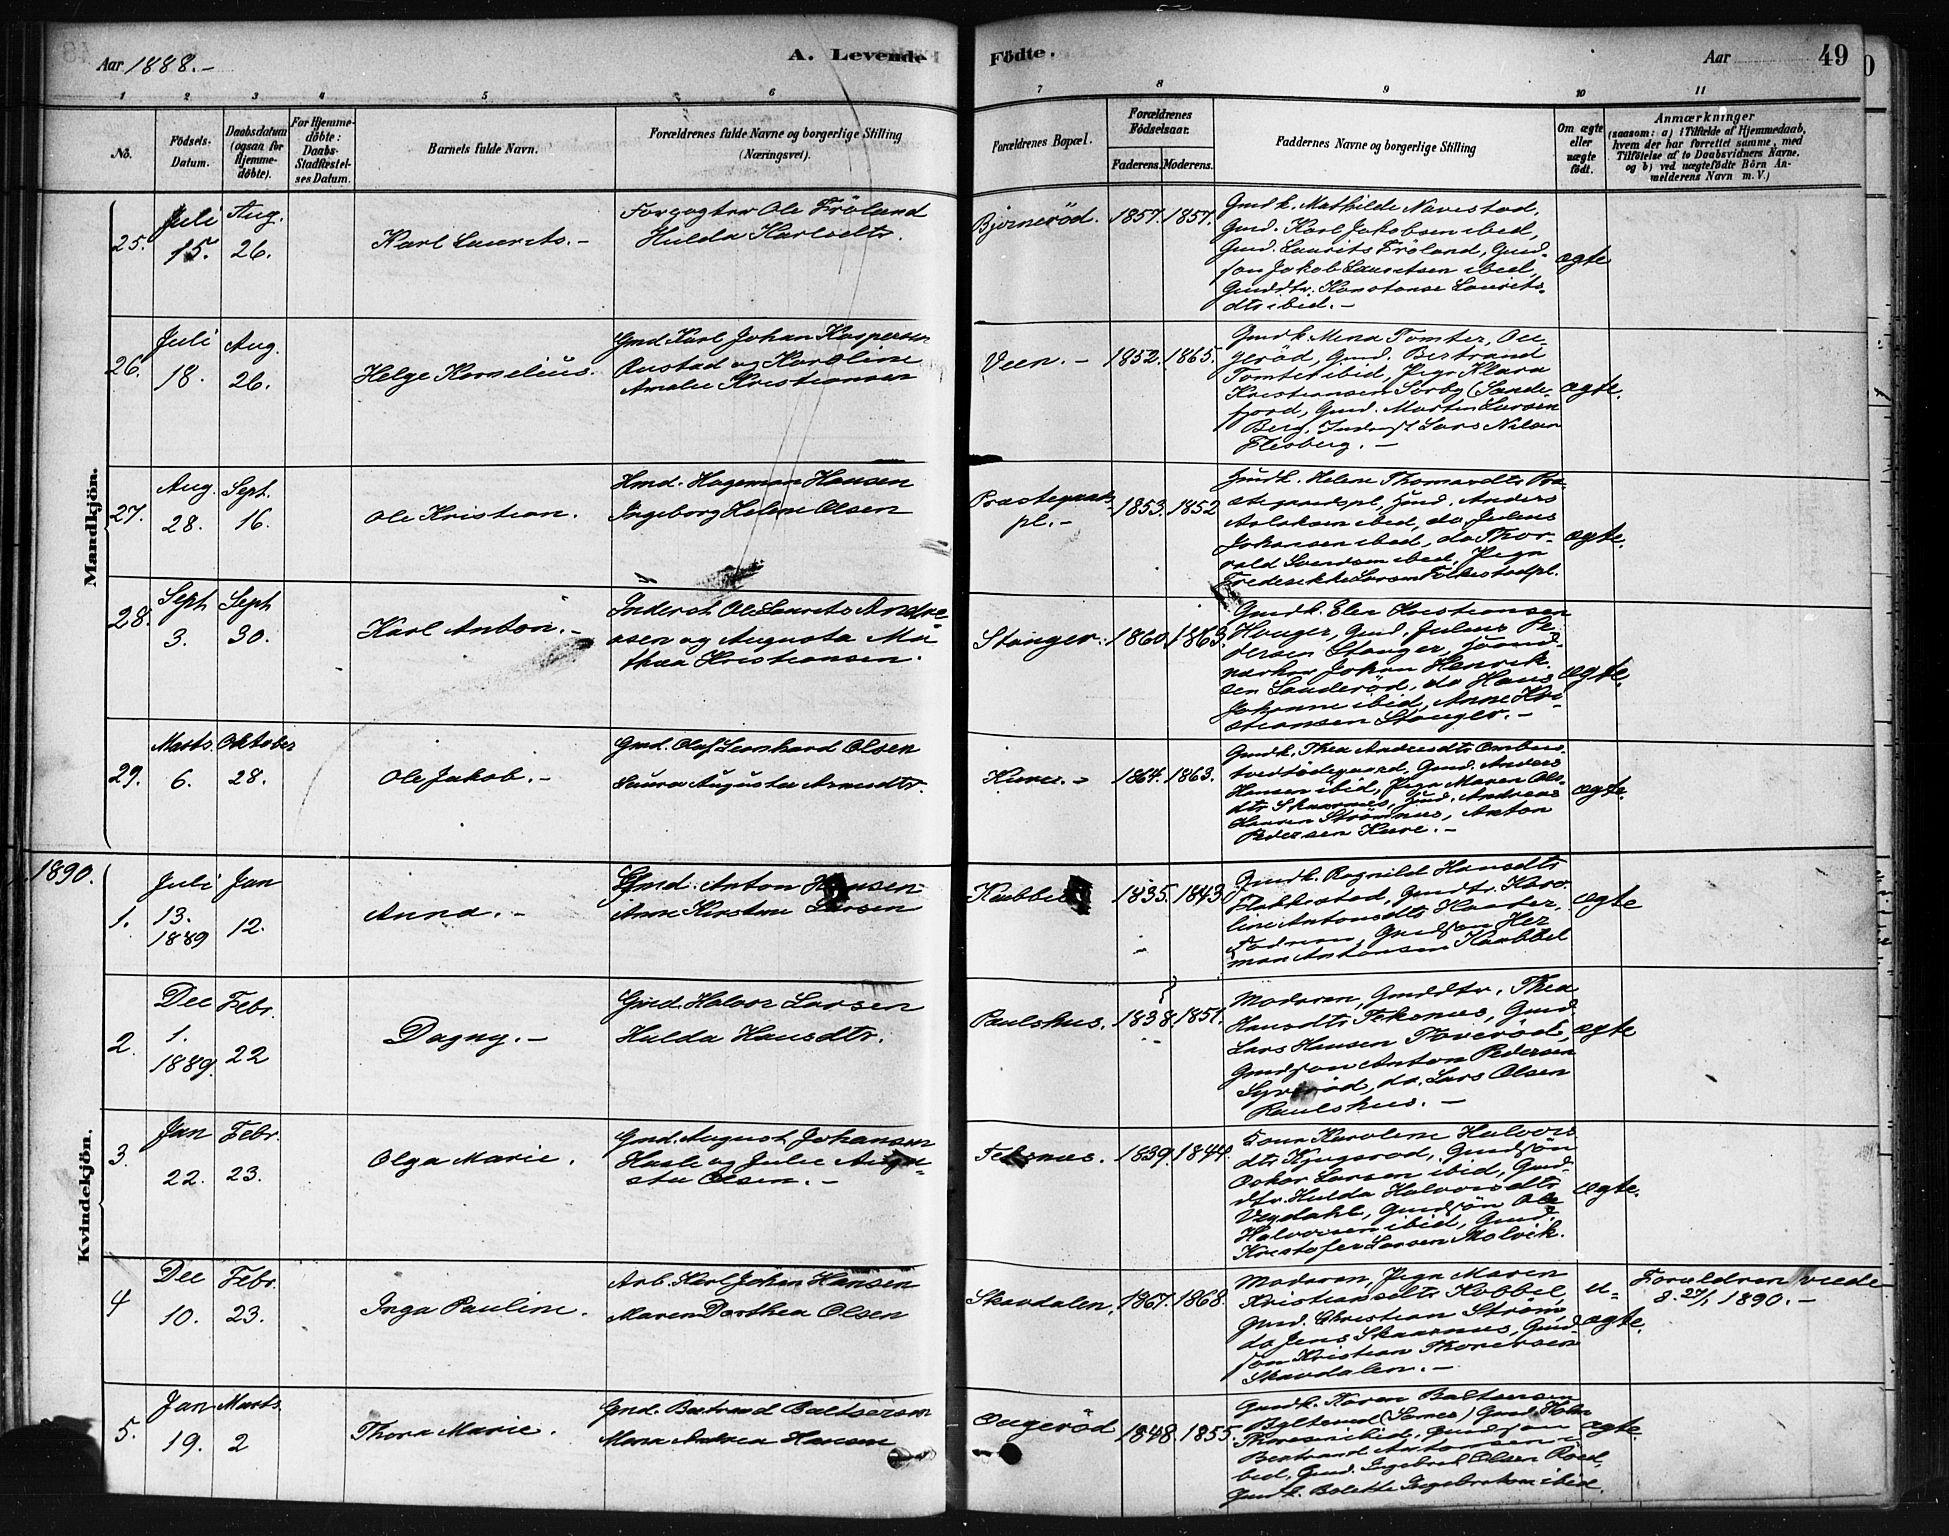 Aar 1888.-
A. Levende Födte.
Aar
49
1 2 3 4 5 6 7 8 9 10 11
No.
Födsels-
Datum.
Daabsdatum
(ogsaa for
Hjemme-
döbte).
For Hjemme-
döbte:
Daabs-
Stadfæstel-
ses Datum.
Barnets fulde Navn.
Forældrenes fulde Navne og borgerlige Stilling
(Næringsvei).
Forældrenes Bopæl.
Forældrenes
Födselsaar.
Faderens. Moderens.
Faddernes Navne og borgerlige Stilling
Om ægte
eller
uægte
födt.
Anmærkninger
(saasom: a) i Tilfælde af Hjemmedaab,
hvem der har forrettet samme, med
Tilföielse af to Daabsvidners Navne,
og b) ved uægtefödte Börn An-
melderens Navn m. V.)
Mandkjön.
25.
Juli
15.
Aug.
26.
Karl Laurits.-
Forgagter Ole Fröland
Hulda Karlsdtr.
Bjørnerød.
1857. 1857.
Gmdk. Mathilde Navestad,
Gmd. Karl Jakobsen ibid,
Gmd. Laurits Fröland, Gmd-
søn Jakob Lauritsen ibid,
Gmddtr. Konstanse Laurits-
dtr ibid.-
ægte
26.
Juli
18.
Aug.
26.
Helge Kornelius.
Gmd Karl Johan Kaspersen
Rustad og Karoline
Amalie Kristiansen
Veen.-
1852. 1865.
Gmdk. Mena Tomter, Ou-
gerød, Gmd. Bertrand
Tomter ibid, Pige Klara
Kristiansen Sörby (Sande-
fjord, Gmd. Martin Larsen
Berg, Inderst Lars Nilsen
Flesberg.-
ægte.
27.
Aug.
28.
Sept.
16.
Ole Kristian.
Hmd. Hageman Hansen
Ingeborg Helene Olsen
Præstegaards-
pl.-
1853. 1852
Hmdk. Helene Thomasdtr Præ-
stegaardspl, Hmd. Anders
Aslaksen ibid, do Julius
Johansen ibid, do Thor-
vald Svendsen ibid, Pige
Frederikke Larsen Folkestadpl.
ægte.
28.
Sept
3.
Sept
30.
Karl Anton.-
Inderst Ole Laurits Andre-
asen og Augusta Ma-
thea Kristiansen.
Stanger.
1860. 1863.
Gmdk. Elen Kristiansen
Hauger, Gmd. Julius Pe-
dersen Stanger,
Johan Henrik-
sen Sanderöd, do Hans
Johanne ibid, Anne Kri-
stiansen Stanger.-
ægte.
29.
Marts
6.
Oktober
28.
Ole Jakob.-
Gmd. Olaf Leonhard Olsen
Laura Augusta Arnesdtr.
Kure.-
1864. 1863.
Gmdk. Thea Andersdtr
Gmd. Anders
Hansen ibid, Pige Maren Ols-
dtr Skaarnes, Gmd. Andreas
Hansen Strømnes, Anton
Pedersen Kure.-
ægte.
1890.
Kvindekjön.
1.
Juli
13.
1889
Jan
12.
Anna.-
Gmd. Anton Hansen
Anne Kirstine Larsen
Kubbel
1835. 1843.
Gmdk. Ragnild Hansdtr
Flakkestad, Gmdtr. Karo-
line Antonsdtr
Gmdsøn Her-
man Antonsen Kubbel
ægte
2.
Dec
1.
1889.
Febr.
22
Dagny.-
Gmd. Halvor Larsen
Hulda Hansdtr.
Paulshus.
1838. 1851.
Moderen, Gmddtr. Thea
Hansdtr Teksnes, Gmd
Lars Hansen Toverød,
Gmdsøn Anton Pedersen
do. Lars Olsen
Paulshus.-
ægte
3.
Jan
22.
Febr.
23.
Olga Marie.
Gmd. August Johansen
Hasle og Julie Augu-
sta Olsen.-
Teksnes.
1839. 1844.
Karoline Halvors-
dtr Gmdsøn
Oskar Larsen ibid, Gmd-
dtr. Hulda Halvorsdtr
Vegdahl, Gmdsøn Ole
Halvorsen ibid, Gmd.
Kristofer Larsen Molvik.
ægte.
4
Dec
10.
Febr.
23.
Inga Pauline.
Arb. Karl Johan Hansen
Maren Dorthea Olsen
Skavdalen.
1867. 1868.
Moderen, Pige Maren
Kristiansdtr Kobbel,
Gmd. Christian Ström,
do Jens Skaarnes, Gmd
søn Kristian Thoresen
Skavdalen.-
u-
ægte.
Forældrene viede
d. 27/1 1890.-
5.
Jan
19.
Marts
2
Thora Marie.
Gmd. Bertrand Baltsersen
Maren Andrea Hansen
Ougeröd
1848. 1855.
Gmdk. Karen Baltsersen
Gmd.
ibid, Gmdsøn
Bertrand Antonsen i-
bid, Gmd. Ingebret Olsen Röed,
Gmdk. Bolette Ingebretsen ibid.
ægte.